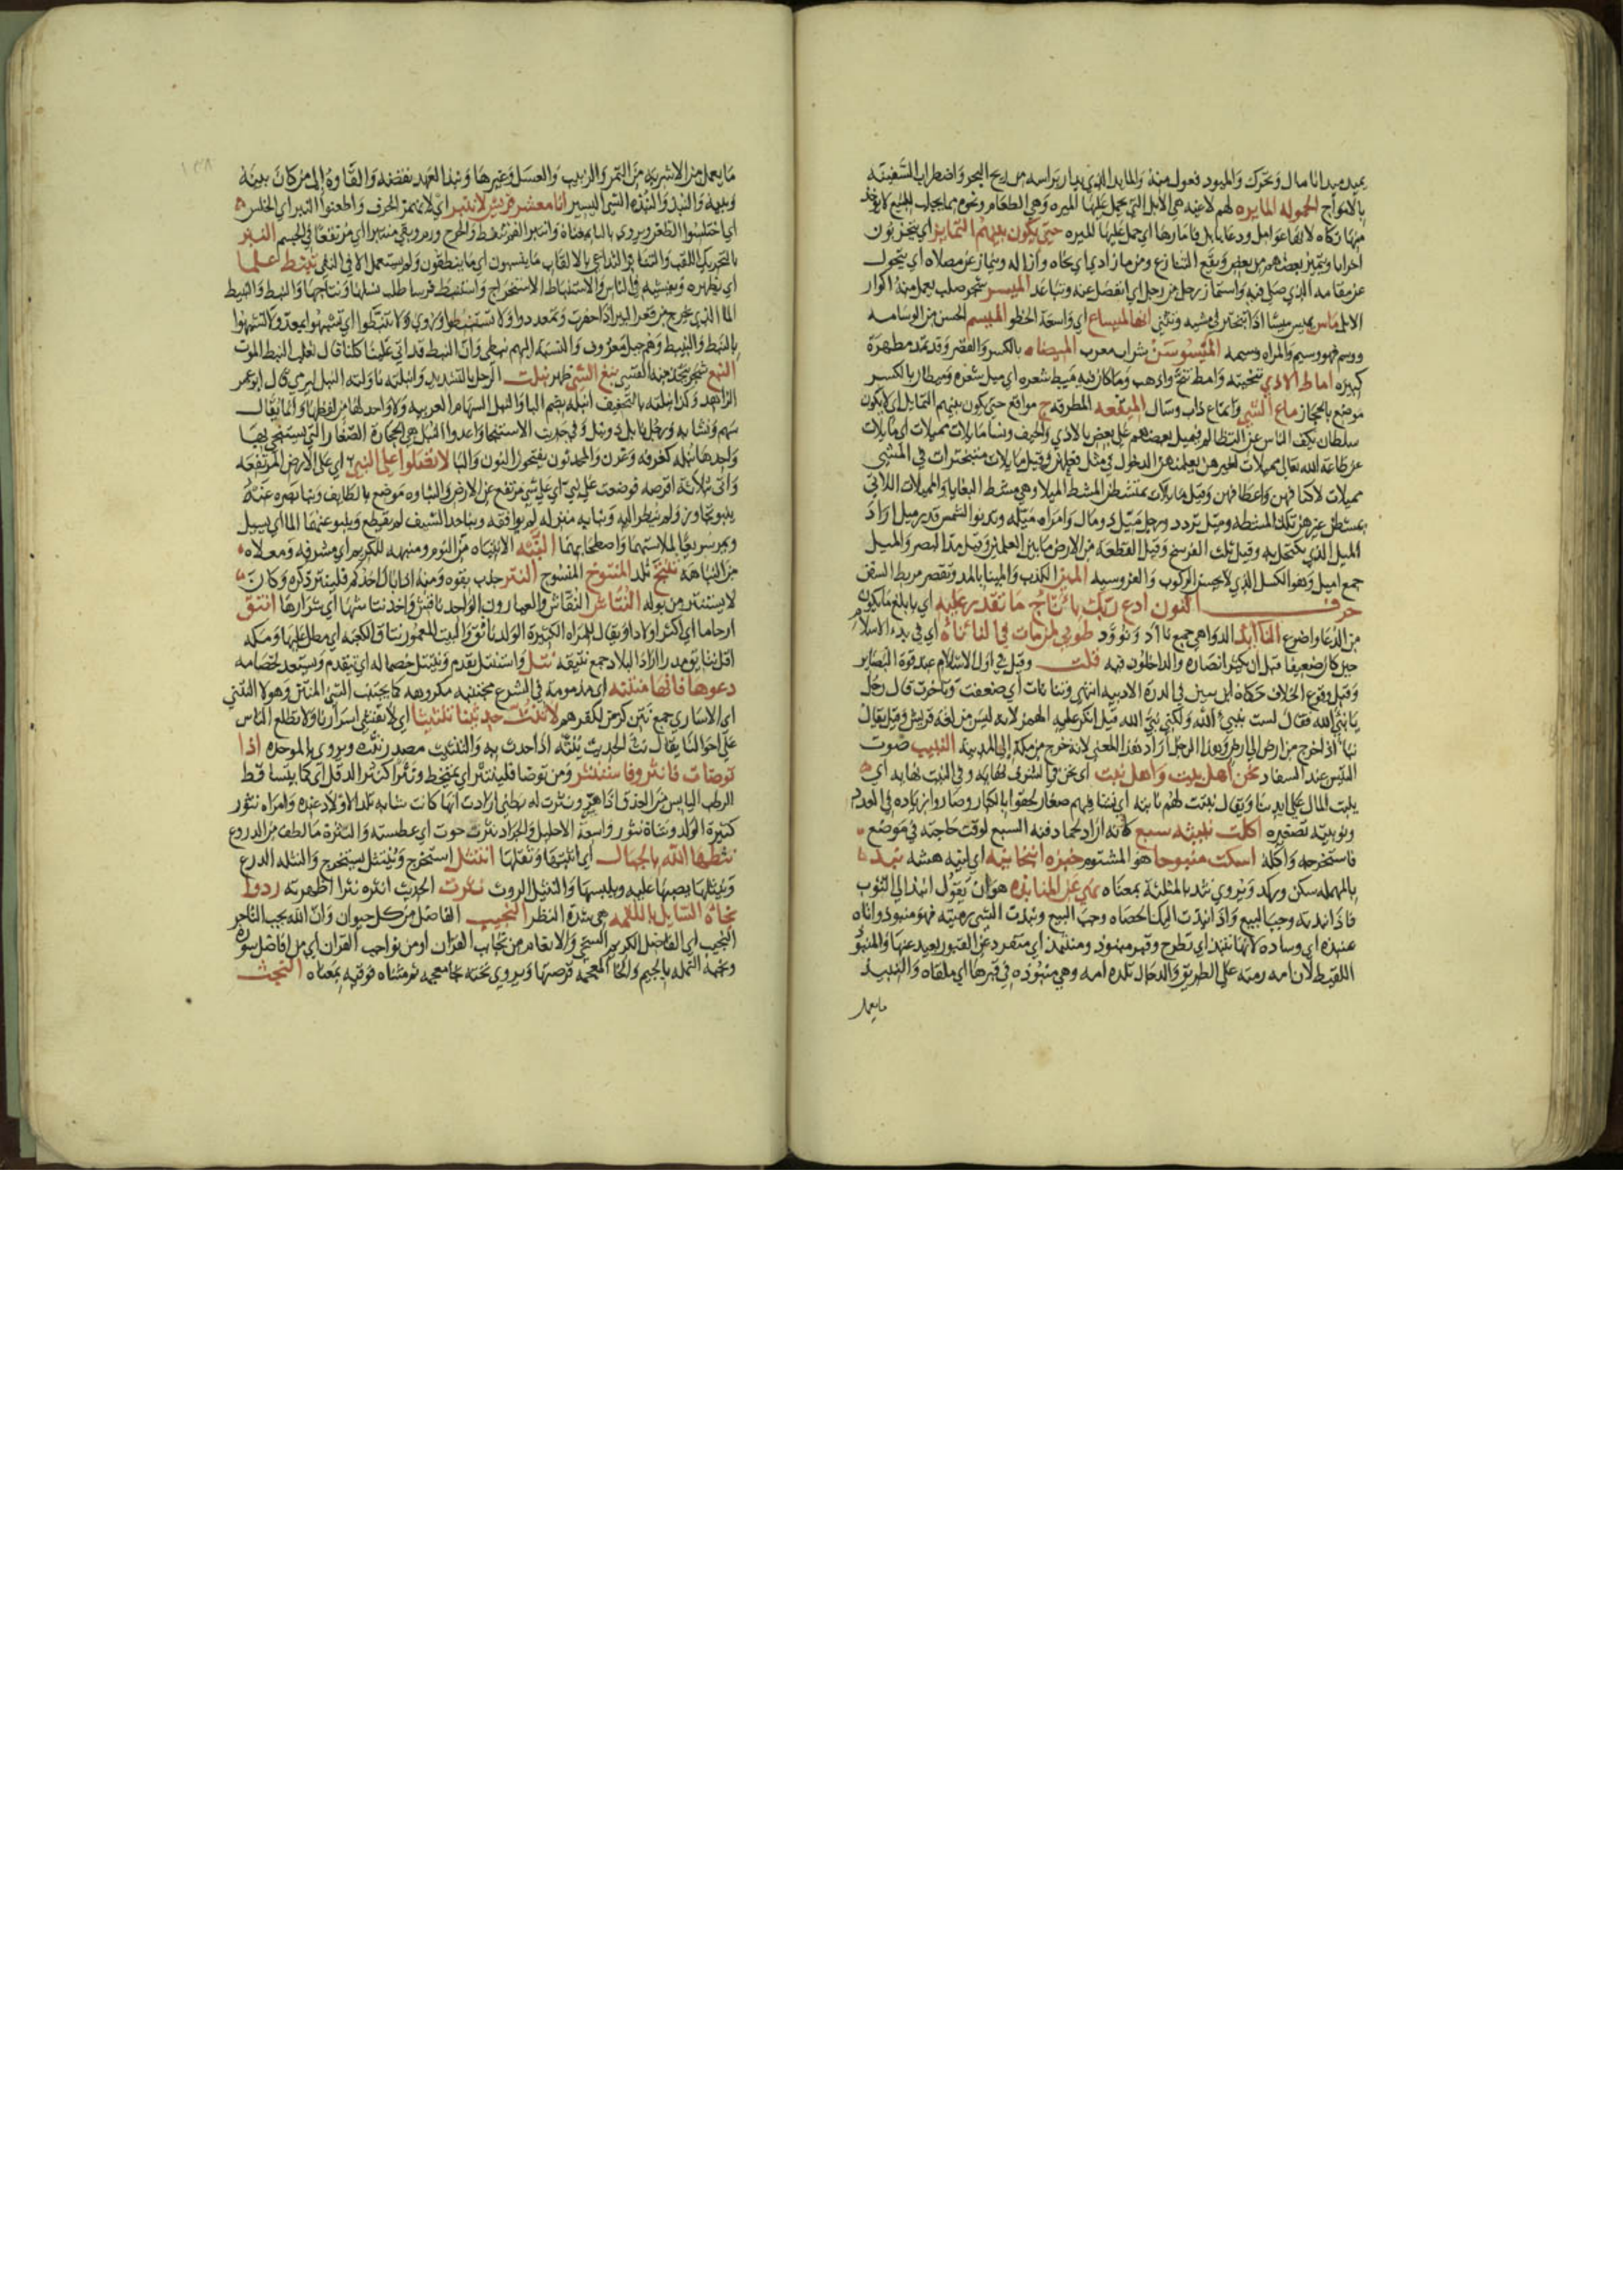 يميد ميدانا مال وتحرك والميود فعول منه والمايد الذي يدار براسه من ريح البحر واضطراب السفينه
بالامواج الحموله المايره لهم لاغيه هي الابل التي يحمل عليها الميره وهي الطعام ونحوه مما يجلب للبيع لا يوخذ
منها زكاه لانها عوامل ودعا بابل فامارها اي حمل عليها الميره حتى يكون بينهم التمايز اي يتحزبون
احزابا ويتميز بعضهم من بعض ويقع التنازع ومن ماز اذي اي نحاه وازاله وينماز عن مصلاه اي يتحول
عن مقامه الذي صلى فيه واستماز رجل من رجل اي انفصل عنه وتباعد الميسر شجر صلب يعمل منه اكوار
الابل ماس يميس ميسا اذا تبختر في مشيه وتثنى انها لميساع اي واسعة الخطو الميسم الحسن من الوسامه
ووسم فهو وسيم والمراه وسيمه الميسوسن شراب معرب الميضاه بالكسر والقصر وقد تمد مطهرة
كبيره اماط الاذي تنحيته وامط تنح واذهب وما كان فيه ميط شعره اي ميل شعره وميطان بالكسر
موضع بالحجاز ماع الشي وانماع ذاب وسال الميقعه المطرقه ج مواقع حتى يكون بينهم التمايل اي لا يكون
سلطان يكف الناس عن التظالم فيميل بعضهم على بعض بالاذي والحيف ونسا مايلات مميلات اي مايلات
عن طاعة الله تعالى مميلات لغيرهن يعلمنهن الدخول في مثل فعلهن وقيل مايلات متبخترات في المشي
مميلات لاكتافهن واعطافهن وقيل مايلات يمتشطن المشط الميلا وهي مشط البغايا والمميلات اللاتي
يمشطن غيرهن تلك المشطه وميل تردد ورجل ميل ذو مال وامراه ميله وتدنوا الشمس قدر ميل اراد
الميل الذي يكتحل به وقيل ثلث الفرسخ وقيل القطعة من الارض ما بين العلمين وقيل مد البصر والميل
جمع اميل وهو الكسل الذي لا يحسن الركوب والفروسيه المين الكذب والمينا بالمد وتقصر مربط السفن
حرف النون ادع ربك بانأج ما تقدر عليه اي بابلغ ما يكون
من الدعا واضرع النآئد الدواهي جمع نآد ونوود طوبى لمن مات في النأنأة اي في بدء الاسلام
حين كان ضعيفا قبل ان يكثر انصاره والداخلون فيه قلت وقيل في اول الاسلام عند قوة البصاير
وقبل وقوع الخلاف حكاه ابن سين في الدرة الادبيه انتهى ونأنأت اي ضعفت وتاخرت قال رجل
يا نبيء الله فقال لست بنبيء الله ولكني نبي الله قيل انكر عليه الهمز لانه ليس من لغة قريش وقيل يقال
نبأ اذا خرج من ارض الى ارض وهذا الرجل اراد هذا المعنى لانه خرج من مكة الى المدينه النبيب صوت
التيس عند السفاد نحن اهل بيت واهل نبت اي نحن في الشرف نهايه وفي النبت نهايه اي
ينبت المال على ايدينا ويقال نبتت لهم نابته اي نشا فيهم صغار لحقوا بالكبار وصاروا زياده في العدد
ونويبته تصغيره اكلت نبيثه سبع كانه اراد لحما دفنه السبع لوقت حاجته في موضع
فاستخرجه واكله اسكت منبوحا هو المشتوم خبزه انبخانيه اي لينه هشه نبذ
بالمهمله سكن وركد ويروي نثد بالمثلثة بمعناه نهى عن المنابذه هو ان يقول انبذ الي الثوب
فاذا نبذته وجب البيع واذا نبذت اليك الحصاه وجب البيع ونبذت الشي رميته فهو منبوذ واتاه
منبذه اي وساده لانها تنبذ اي تطرح وقبر منبوذ ومنتبذ اي منفرد عن القبور بعيد عنها والمنبوذ
اللقيط لان امه رمته على الطريق والدجال تلده امه وهي منبوذه في قبرها اي ملقاه والنبيذ
ما يعمل
ما يعمل من الاشربه من التمر والزبيب والعسل وغيرها ونبذ العهد نقضه والقاوه الى من كان بينه
وبينه والنبذ والنبذه الشي اليسير انا معشر قريش لا ننبر اي لا نهمز الحرف واطعنوا النبر اي الخلس
اي اختلسوا الطعن ويروي بالياء بمعناه وانتبر الفم تنفط والجرح ورم وبقي منتبرا اي مرتفعا في الجسم النبز
بالتحريك اللقب والتنابز التداعي بالالقاب ما ينبسون اي ما ينطقون ولم يستعمل الا في النفي ينبط علما
اي يظهره ويفشيه في الناس والاستنباط الاستخراج واستنبط فرسا طلب نسلها ونتاجها والنبط والنبيط
الما الذي يخرج من قعر البير اذا حفرت وتمعددوا ولا تستنبطوا ويروي ولا تنبطوا اي تشبهوا بمعد ولا تتشبهوا
بالنبط والنبيط وهم جيل معروف والنسبة اليهم نبطي وان النبط قد اتى علينا كلنا قال ثعلب النبط الموت
النبع شجر يتخذ منه القسي نبغ الشي ظهر نبلت الرجل بالتشديد وانبلته ناولته النبل ليرمي قال ابو عمر
الزاهد وكذا نبلته بالتخفيف انبله بضم البا والنبل السهام العربيه ولا واحد لها من لفظها وانما يقال
سهم ونشابه ورجل نابل ذو نبل وفي حديث الاستنجا واعدوا النبل هي الحجارة الصغار التي يستنجي بها
واحدها نبله كغرفه وغرف والمحدثون يفتحون النون والبا لا تصلوا على النبي اي على الارض المرتفعه
واتى بثلاثة اقرصه فوضعت على نبي اي على شي مرتفع عن الارض والنباوه موضع بالطايف ونبا بصره عنه
ينبو تجاوز ولم ينظر اليه ونبا به منزله لم يوافقه ونبا حد السيف لم يقطع وينبو عنهما الما اي يسيل
ويمر سريعا لملاستهما واصطحابهما النبه الانتباه من النوم ومنبهه للكريم اي مشرفه ومعلاه
من النباهة نتج تلد المنتوخ المنسوج النتر جذب بقوه ومنه اذا بال احدكم فلينتر ذكره وكان
لا يستنتر من بوله النتاش النقاش والعيارون الواحد ناتش واخذ نتاشها اي شرارها انتق
ارحاما اي اكثر اولادا ويقال للمراه الكثيرة الولد ناتق والبيت المعمور نتاق الكعبه اي مطل عليها ومكه
اقل نتايق مدرا اراد البلاد جمع نتيقه نتل واستنتل تقدم وينتتل خصما له اي يتقدم ويستعد لخصامه
دعوها فانها منتنه اي مذمومة في الشرع مجتنبه مكروهه كما يجتنب الشي المنتن وهولا النتنى
اي الاساري جمع نتن كزمن لكفرهم لا تنث حديثنا تنثيثا اي لا تفشي اسرارنا ولا تطلع الناس
على احوالنا يقال نث الحديث ينثه اذا حدث به والتنثيث مصدر تنث ويروي بالموحده اذا
توضات فانثر وفاستنثر ومن توضا فلينثر اي يمتخط ونثرا كنثر الدقل اي كما يتساقط
الرطب اليابس من العذق اذا هز ونثرت له بطني ارادت انها كانت شابه تلد الاولاد عنده وامراه نثور
كثيرة الولد وشاة نثور واسعة الاحليل والجراد نثرة حوت اي عطسته والنثرة ما لطف من الدروع
نثطها الله بالجبال اي اثبتها وثقلها انتثل استخرج وينتثل يستخرج والنثله الدرع
وينثلها يصبها عليه ويلبسها والنثيل الروث نثوت الحديث انثوه نثوا اظهرته ردوا
نجأة السايل باللقمه هي شدة النظر النجيب الفاضل من كل حيوان وان الله يحب التاجر
النجيب اي الفاضل الكريم السخي والانعام من نجايب القران او من نواجب القران اي من افاضل سوره
ونجبة النمله بالجيم والخا المعجمه قرصتها ويروي نخته بخا معجمه ثم مثناه فوقيه بمعناه النجث